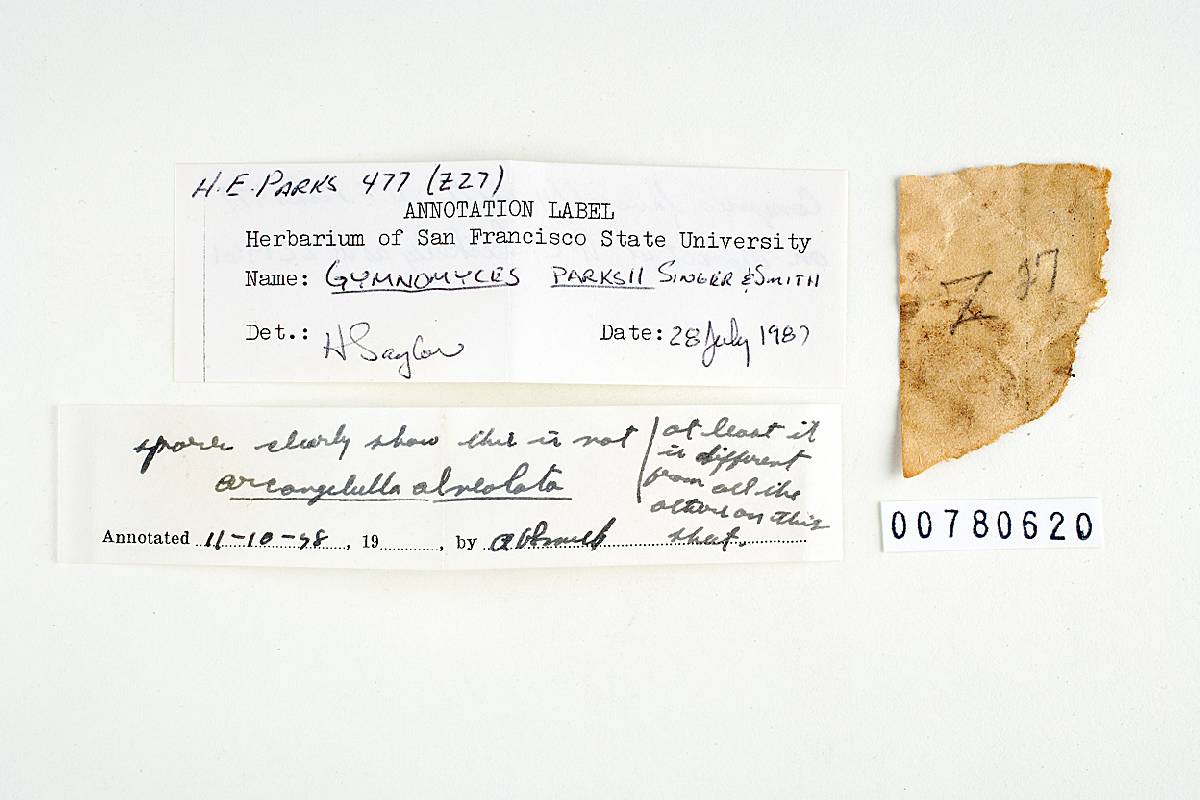 H. E. PARKS 477 (Z27)
ANNOTATION LABEL
Herbarium of San Francisco State University
Name: GYMNOMYCES PARKSII SINGER & SMITH
Det.: H Saylor
Date: 28 July 1987
spores clearly show this is not
arcangeliella alveolata
at least it
is different
from all the
others on this
sheet.
Annotated 11-10-58, 19, by AHSmith
Z 27
00780620